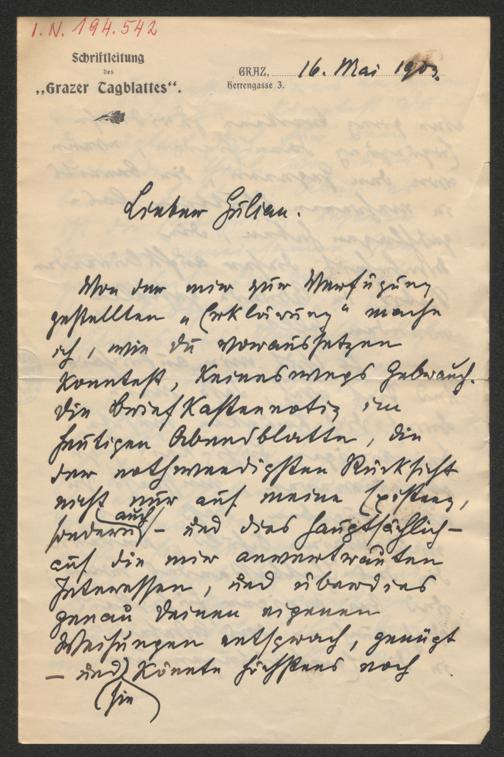 I.N. 194.542
Schriftleitung
des
„Grazer Tagblattes“.
GRAZ, 16. Mai 1903.
Herrengasse 3.
Lieber Julian.
Von der mir zur Verfügung
gestellten „Erklärung“ mache
ich, wie Du voraussetzen
konntest, keineswegs Gebrauch.
Die Briefkastennotiz im
heutigen Abendblatte, die
der nothwendigsten Rücksicht
nicht nur auf meine Existenz,
sondern auch – und dies hauptsächlich –
auf die mir anvertrauten
Interessen, und überdies
genau Deinen eigenen
Weisungen entsprach, genügt
– und könnte höchstens noch
sie